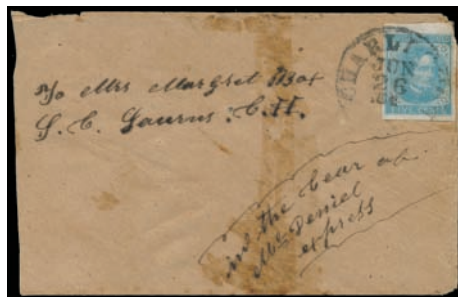 To Mrs Margret
S. C. Laurns C.H.
CHARL
JUN
6
in the Cear of
Mc Deniel
express